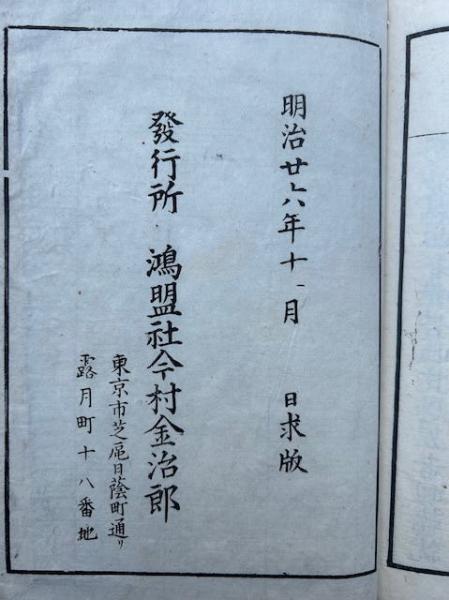 明治廿六年十一月 日求版
發行所 鴻盟社今村金治郎
東京市芝區日蔭町通リ
露月町十八番地